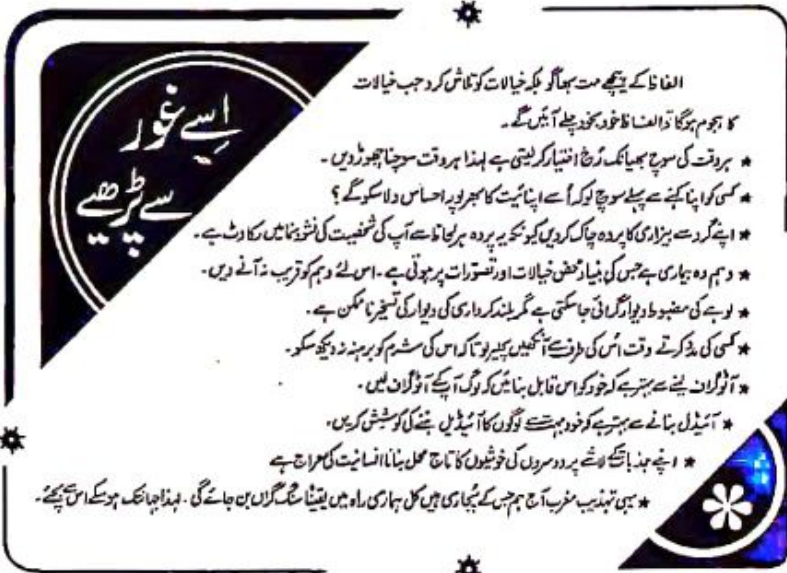 اِسے غور
سے پڑھیے
الفاظ کے پیچھے مت بھاگو بلکہ خیالات کو تلاش کرو جب خیالات
کا ہجوم ہوگا تو الفاظ خود بخود چلے آئیں گے۔
* ہر وقت کی سوچ بھیانک رُخ اختیار کر لیتی ہے لہٰذا ہر وقت سوچنا چھوڑ دیں۔
* کسی کو اپنا کہنے سے پہلے سوچ لو کہ اُسے اپنائیت کا بھرپور احساس دلا سکو گے؟
* اپنے گرد سے بیزاری کا پردہ چاک کر دیں کیونکہ یہ پردہ ہر لحاظ سے آپ کی شخصیت کی نشوونما میں رکاوٹ ہے۔
* وہم وہ بیماری ہے جس کی بنیاد محض خیالات اور تصوّرات پر ہوتی ہے۔ اس لئے وہم کو قریب نہ آنے دیں۔
* لوہے کی مضبوط دیوار گرائی جا سکتی ہے مگر بلند کرداری کی دیوار کی تسخیر نا ممکن ہے۔
* کسی کی مدد کرتے وقت اُس کی طرف سے آنکھیں پھیر لو تاکہ اس کی شرم کو برہنہ نہ دیکھ سکو۔
* آٹوگراف لینے سے بہتر ہے کہ خود کو اس قابل بنائیں کہ لوگ آپ کے آٹوگراف لیں۔
* آئیڈیل بنانے سے بہتر ہے کہ خود بہت سے لوگوں کا آئیڈیل بننے کی کوشش کریں۔
* اپنے جذبات کے لاشے پر دوسروں کی خوشیوں کا تاج محل بنانا انسانیت کی معراج ہے
* یہی تہذیب مغرب آج ہم جس کے پُجاری ہیں کل ہماری راہ میں یقیناً سنگ گراں بن جائے گی۔ لہٰذا جہانتک ہو سکے اس سے بچئے۔